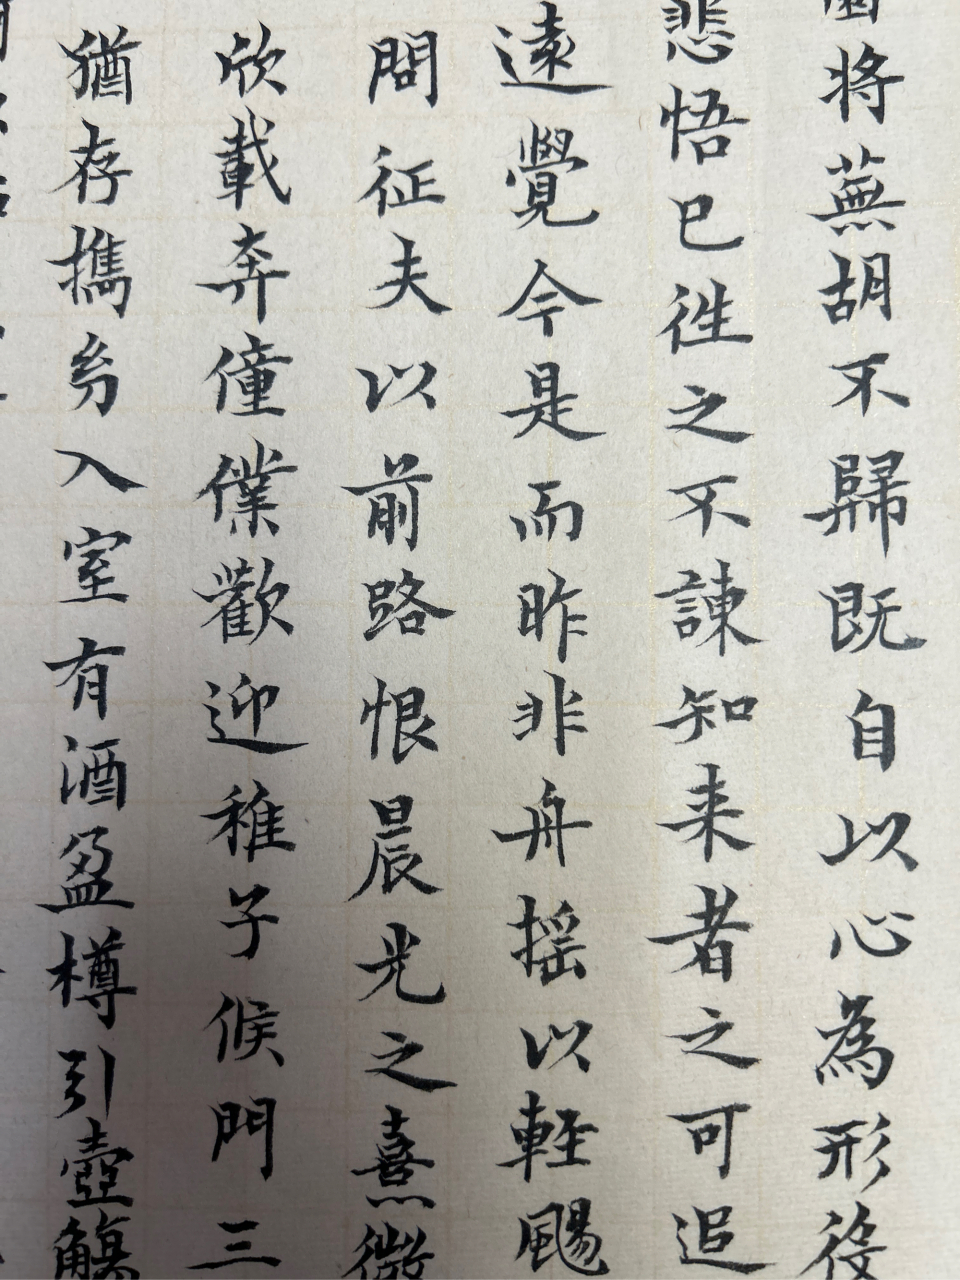 将蕪胡不歸既自以心為形役
悲悟已往之不諫知来者之可追
遠覺今是而昨非舟摇以輕颺
問征夫以前路恨晨光之熹微
欣載奔僮僕歡迎稚子候門三
猶存携幼入室有酒盈樽引壺觴